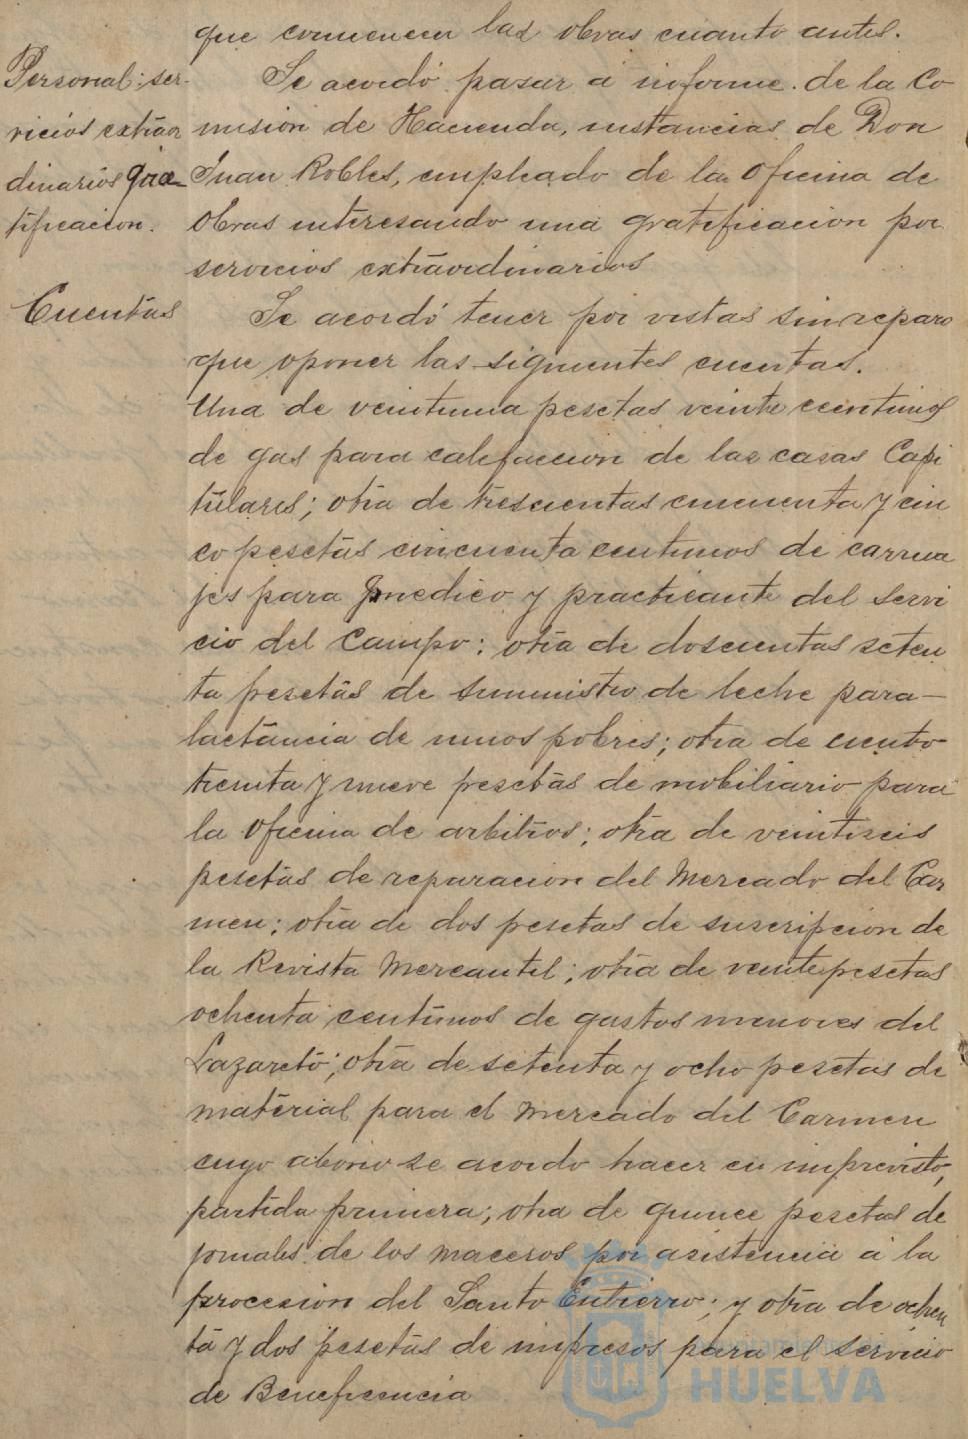 que comiencen las obras cuanto antes.
Personal: ser-
vicios extraor
dinarios gra-
tificacion.
Se acordó pasar á informe de la Co
mision de Hacienda, instancias de Don
Juan Robles, empleado de la Oficina de
Obras interesando una gratificacion por
servicios extraordinarios
Cuentas
Se acordó tener por vistas sin reparo
que oponer las siguientes cuentas.
Una de veintiuna pesetas veinte centimos
de gas para calefaccion de las casas Capi
tulares; otra de trescientas cincuenta y cin
co pesetas cincuenta centimos de carrua
jes para medico y practicante del servi
cio del Campo; otra de doscientas seten
ta pesetas de suministro de leche para
lactancia de niños pobres; otra de ciento
treinta y nueve pesetas de mobiliario para
la Oficina de arbitrios; otra de veintiseis
pesetas de reparacion del Mercado del Car
men; otra de dos pesetas de suscripcion de
la Revista Mercantil; otra de veinte pesetas
ochenta centimos de gastos menores del
Lazareto; otra de setenta y ocho pesetas de
material para el Mercado del Carmen
cuyo abono se acordo hacer en imprevisto,
partida primera; otra de quince pesetas de
jornales de los maceros por asistencia á la
procesion del Santo Entierro; y otra de ochen
ta y dos pesetas de impresos para el servicio
de Beneficencia
HUELVA